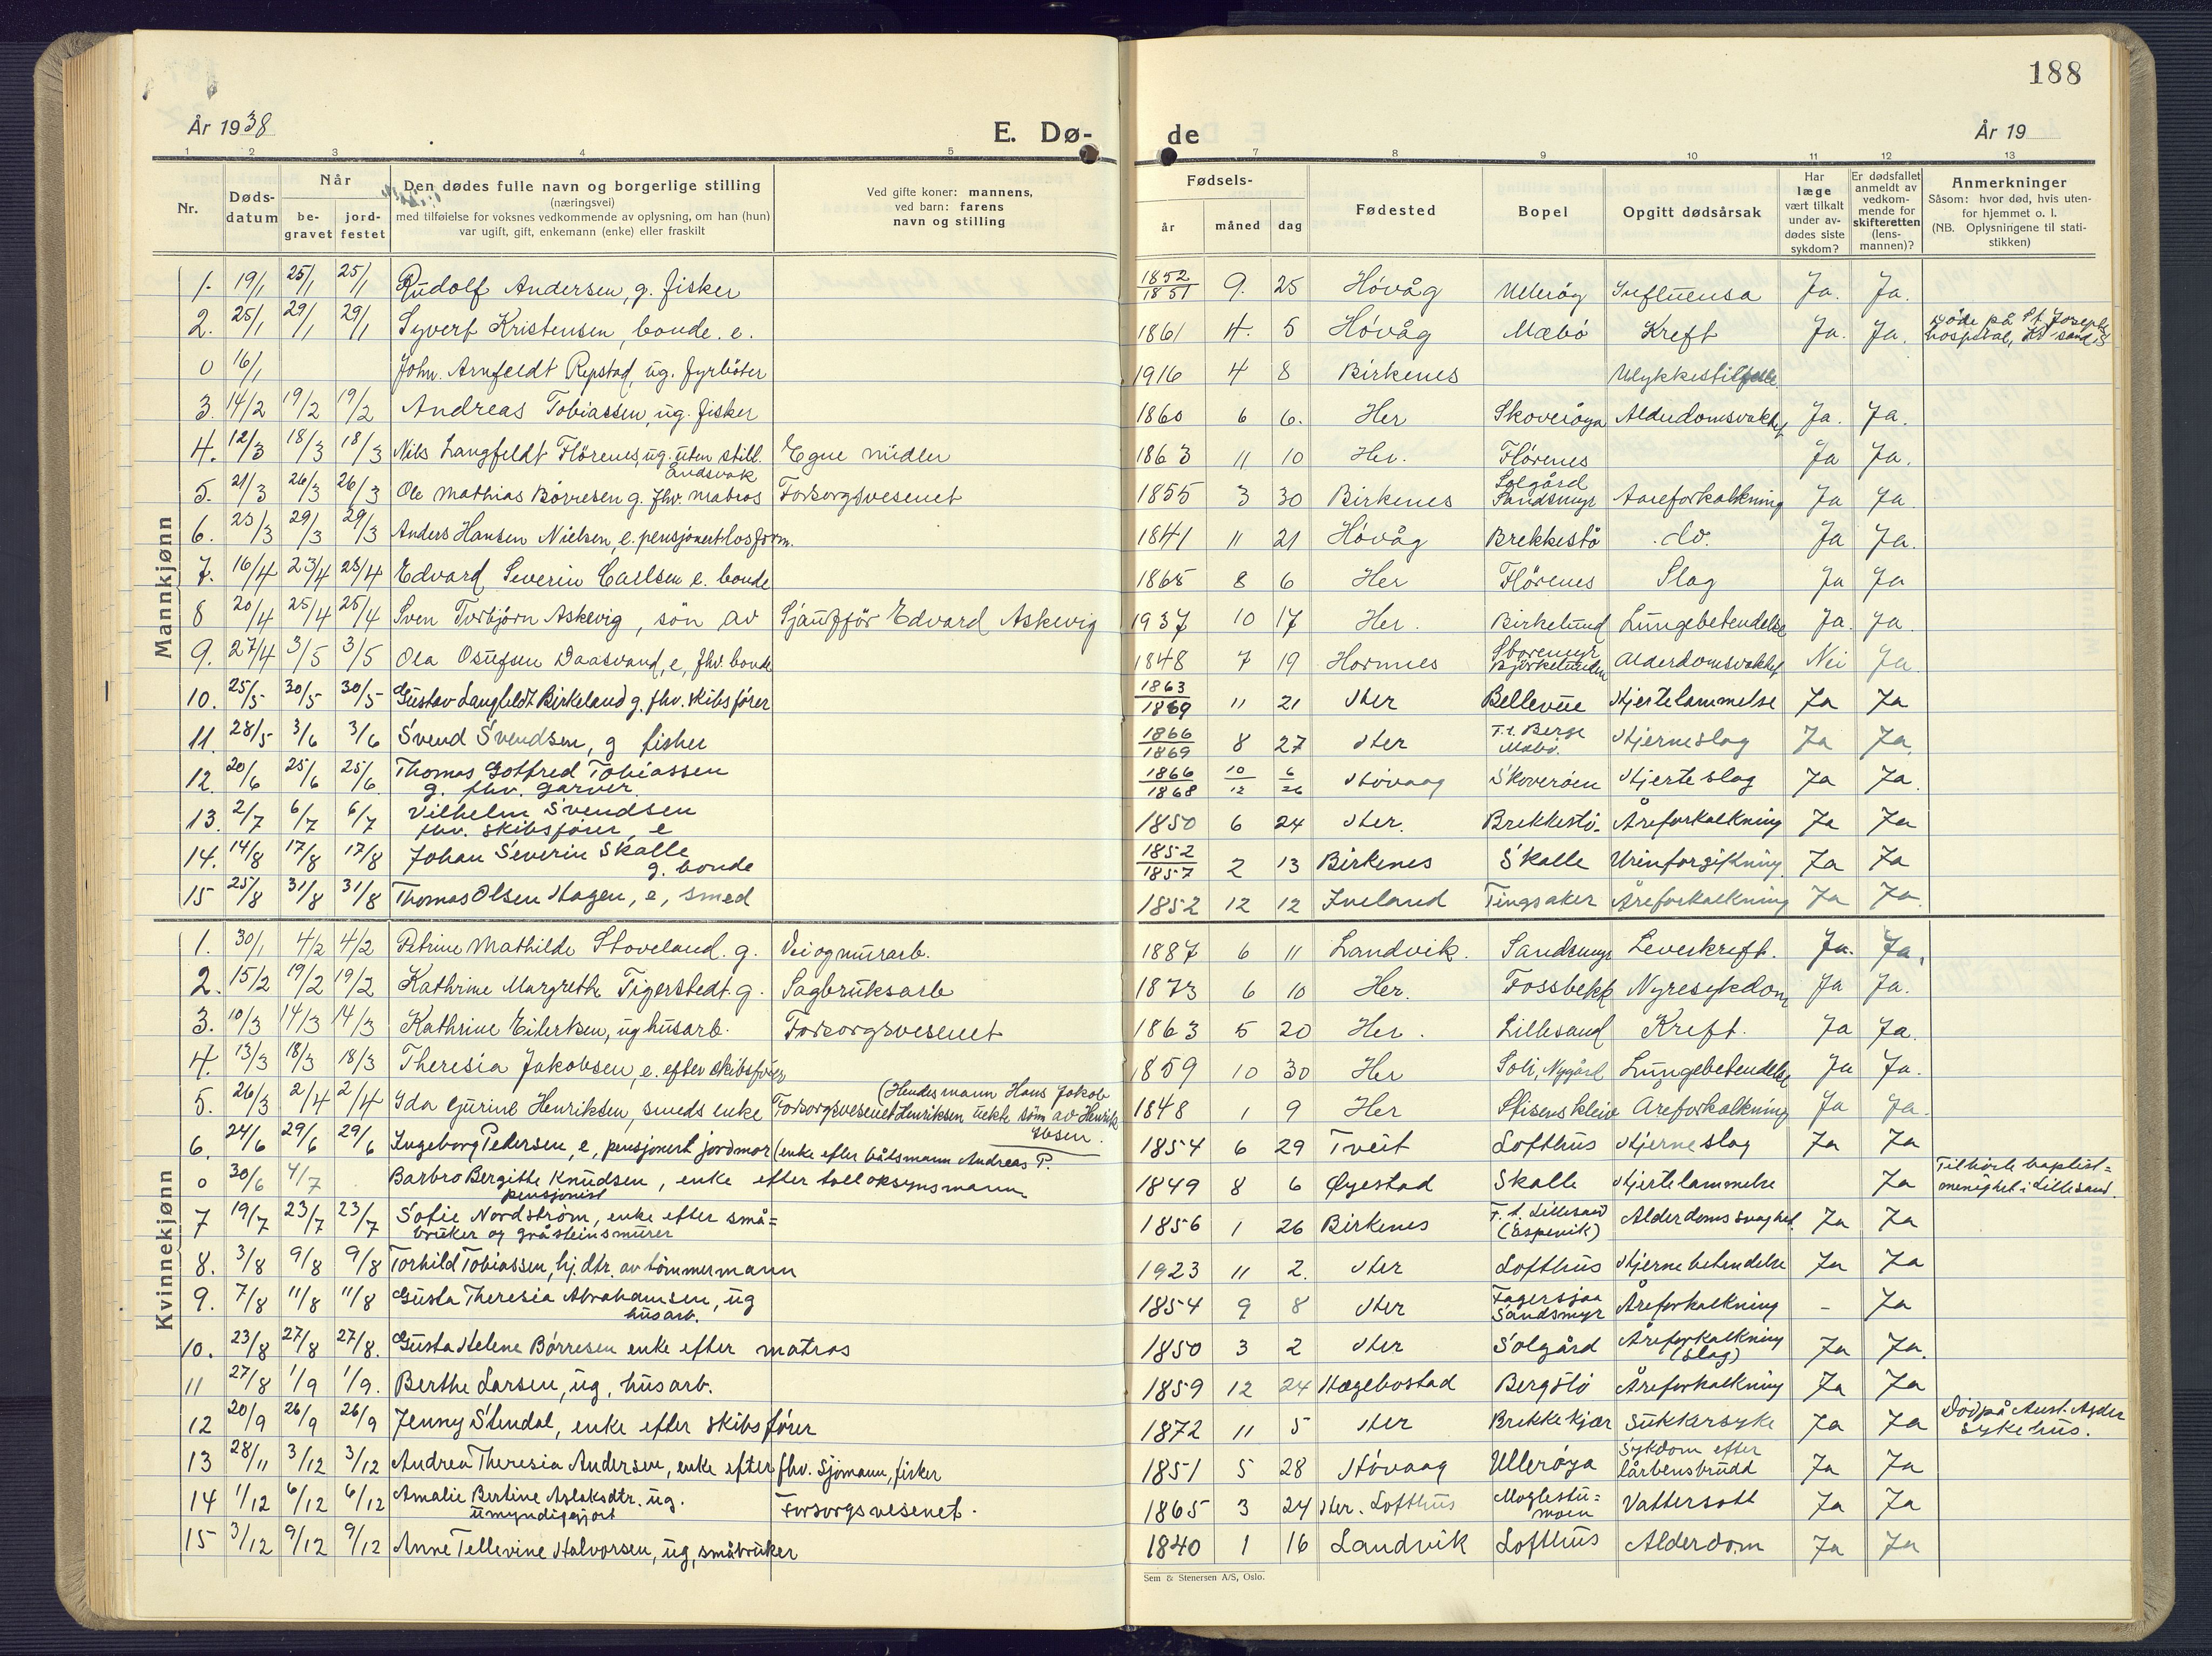 188
År 1938
E. Dø-
de
År 19
1 2 3 3 4 5 7 8 9 10 11 12 13
Nr.
Døds-
datum
Når
be-
gravet
jord-
festet
Den dødes fulle navn og borgerlige stilling
(næringsvei)
med tilføielse for voksnes vedkommende av oplysning, om han (hun)
var ugift, gift, enkemann (enke) eller fraskilt
Ved gifte koner: mannens,
ved barn: farens
navn og stilling
Fødsels-
år måned dag
Fødested
Bopel
Opgitt dødsårsak
Har
læge
vært tilkalt
under av-
dødes siste
sykdom?
Er dødsfallet
anmeldt av
vedkom-
mende for
skifteretten
(lens-
mannen)?
Anmerkninger
Såsom: hvor død, hvis uten-
for hjemmet o. l.
(NB. Oplysningene til stati-
stikken)
Mannkjønn
1. 19/1 25/1 25/1 Rudolf Andersen, g. fisker 1852/1851 9. 25 Høvåg Ulerøy Influensa Ja. Ja.
2. 25/1 29/1 29/1 Syvert Kristensen, bonde. e. 1861 4. 5 Høvåg Mæbø Kreft Ja. Ja. døde på St. Josephs
hospital, Kr.sand S
0 16/1 John. Arnfeldt Repstad, ug. fyrbøter 1916 4 8 Birkenes Ulykkestilfelle
3. 14/2 19/2 19/2 Andreas Tobiassen, ug. fisker 1860 6 6. Her Skoverøya Alderdomsvakhet Ja. Ja.
4. 12/3 18/3 18/3 Nils Langfeldt Flörenes, ug. uten still. Egne midler 1863 11 10 Her. Flørenes Ja Ja.
åndsvak
5. 21/3 26/3 26/3 Ole Mathias Børresen g. fhv. matros Forsorgsvesenet 1855 3 30 Birkenes Solgård
Sandsmyr Aareforkalkning Ja Ja
6. 23/3 29/3 29/3 Anders Hansen Nielsen, e. pensjonert losform. 1841 11 21 Høvåg Brekkestø do. Ja Ja.
7. 16/4 23/4 23/4 Edvard Severin Carlsen e. bonde 1865 8 6 Her Flørenes Slag Ja Ja
8 20/4 25/4 25/4 Sven Torbjørn Askevig, søn av Sjauffør Edvard Askevig 1937 10 17 Her. Birkelund Lungebetendelse Ja. Ja.
9. 27/4 3/5 3/5 Ola Osufsen Daasvand, e, fhv. bonde 1848 7 19 Hornnes Storemyr
Bjørkelunden Alderdomsvakhet Nei Ja.
10. 25/5 30/5 30/5 Gustav Langfeldt Birkeland g. fhv. skibsfører 1863/1869 11 21 Her Bellevue Hjertelammelse Ja Ja
11. 28/5 3/6 3/6 Svend Svendsen, g fisker 1866/1869 8 27 Her F.t. Berge
Mæbø. Hjerneslag Ja Ja.
12. 20/6 25/6 25/6 Thomas Gotfred Tobiassen
g. fhv. garver. 1866/1868 10/12 6/26 Høvaag Skoverøen Hjerteslag Ja Ja.
13. 2/7 6/7 6/7 Vilhelm Svendsen
fhv. skibsfører, e 1850 6 24 Her. Brekkestø. Åreforkalkning Ja Ja
14. 14/8 17/8 17/8 Johan Severin Skalle
g. bonde 1852/1857 2 13 Birkenes Skalle Urinforgiftning Ja Ja
15 25/8 31/8 31/8 Thomas Olsen Hagen, e, smed 1852 12 12 Iveland Tingsaker Åreforkalkning Ja Ja.
Kvinnekjønn
1. 30/1 4/2 4/2 Petrine Mathilde Stoveland. g. Vei og murarb. 1887 6 11 Landvik. Sandsmyr Leverkreft. Ja. Ja.
2. 15/2 19/2 19/2 Kathrine Margrethe Tigerstedt. g. Sagbruksarb 1873 6 10 Her. Fossbekk Nyresykdom Ja Ja.
3. 10/3 14/3 14/3 Kathrine Eilertsen, ug husarb. Forsorgsvesenet 1863 5 20 Her. Lillesand Kreft. Ja Ja.
4. 13/3 18/3 18/3 Theresia Jakobsen, e. efter skibsfører 1859 10 30 Her Soli, Nygård Lungebetendelse Ja Ja.
5. 26/3 2/4 2/4 Ida Gurine Henriksen, smeds enke Forsorgsvesenet (Hendes mann Hans Jakob
Henriksen uekte sønn av Henrik
Ibsen. 1848 1 9 Her Stisenskleiv Åreforkalkning Ja Ja.
6. 24/6 29/6 29/6 Ingeborg Pedersen, e, pensjonert jordmor (enke efter båtsmann Andreas P. 1854 6 29 Tveit Lofthus Hjerneslag Ja Ja
0 30/6 4/7 Barbro Bergithe Knudsen, enke efter tolloksynsmann
pensjonist 1849 8 6 Øyestad Skalle Hjertelammelse Ja Tilhørte baptist=
menighet i Lillesand.
7 19/7 23/7 23/7 Sofie Nordström, enke efter små=
bruker og gråsteinsmurer 1856 1 26 Birkenes F.t. Lillesand
(Espevik) Alderdomssvaghet Ja Ja
8. 3/8 9/8 9/8 Torhild Tobiassen, hj. dtr. av tømmermann 1923 11 2. Her Lofthus Hjernebetendelse Ja Ja
9. 7/8 11/8 11/8 Gusta Theresia Abrahamsen, ug
husarb. 1854 9 8 Her Fagersjaa
Sandsmyr Åreforkalkning - Ja
10. 23/8 27/8 27/8. Gusta Helene Børresen enke efter matros 1850 3 2 Her Solgård Åreforkalkning
(slag) Ja Ja.
11 27/8 1/9 1/9. Berthe Larsen, ug, husarb. 1859 12 24 Hægebostad Bergstø Åreforkalkning Ja Ja
12 20/9 26/9 26/9 Jenny Stendal, enke efter skibsfører 1872 11 5 Her Brekkekjær Sukkersyke Ja Ja Død på Aust-Agder
sykehus.
13 28/11 3/12 3/12 Andrea Theresia Andersen, enke efter fhv. sjømann, fisker 1851 5 28 Høvaag Ullerøya Sykdom efter
lårbensbrudd Ja Ja
14 1/12 6/12 6/12 Amalie Bertine Aslaksdtr. ug.
umyndiggjort Forsorgsvesenet. 1865 3 24 Her. Lofthus Moglestu=
moen Vattersott Ja Ja
15 3/12 9/12 9/12 Anne Tellevine Halvorsen, ug, småbruker 1840 1 16 Landvik Lofthus Alderdom Ja Ja
Sem & Stenersen A/S, Oslo.